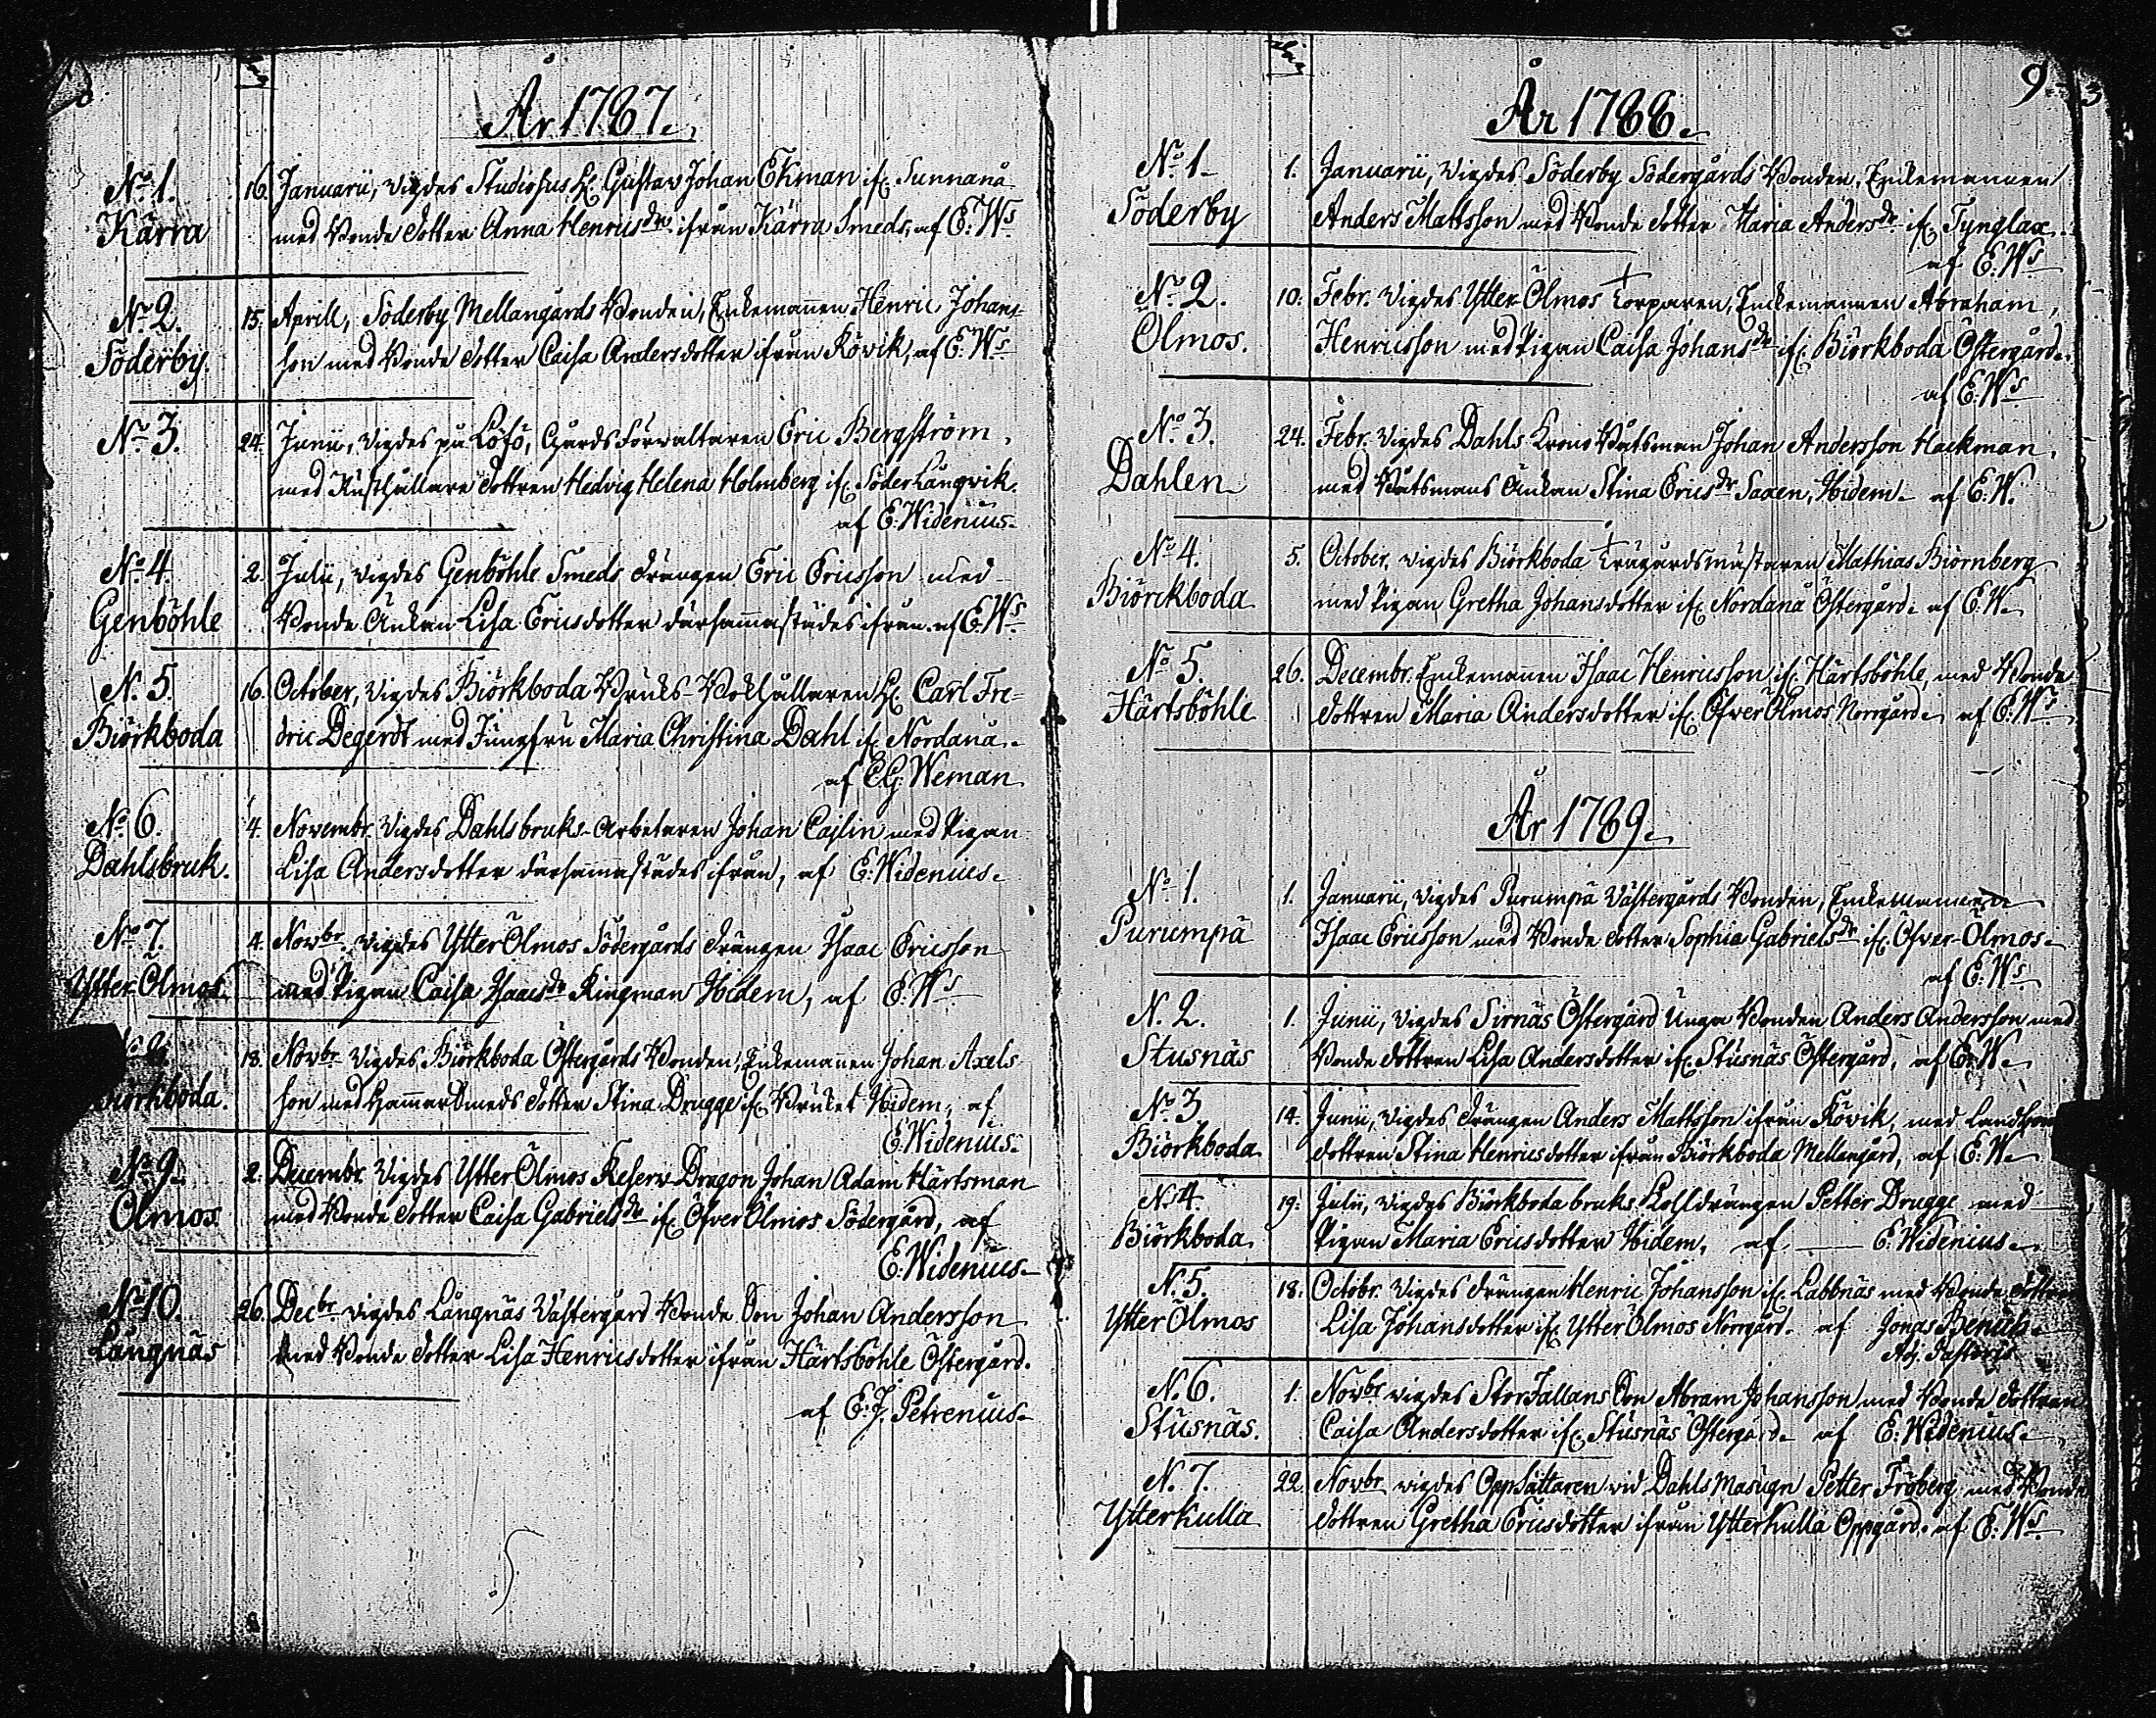 8.
Dag
År 1787.
No 1. 16. Januarii, vigdes Studiosus H: Gustav Johan Ekman if: Sunnanå
Kärra med Bonde dotter Anna Henricsdr ifrån Kärra Smeds, af E: Ws
No 2. 15. Aprill, Söderby Mellangårds Bonden, Enkemannen Henric Johans-
Söderby. son med Bonde dotter Caisa Andersdotter ifrån Rövik, af E: Ws
No 3. 24. Junii, vigdes på Löfö, Gårds Förvaltaren Eric Bergström,
med Rusthållare dottren Hedvig Helena Holmberg if: Söder Långvik.
af E: Widenius.
No 4. 2. Julii, vigdes Genböhle Smeds drängen Eric Ericsson med
Genböhle Bonde Änkan Lisa Ericsdotter därsammastädes ifrån. af E: Ws
N. 5. 16. October, vigdes Biörkboda Bruks-Bokhållaren H: Carl Fre-
Biörkboda dric Degerdt med Jungfru Maria Christina Dahl if: Nordanå.
af E G: Weman
No 6. 4. Novembr. vigdes Dahlsbruks-Arbetaren Johan Cajlin med Pigan
Dahlsbruk. Lisa Andersdotter därsammastädes ifrån, af E: Widenius.
No 7. 4. Novbr. vigdes Ytter Ölmos Södergårds drängen Isaac Ericsson
Ytter Ölmos. med Pigan Caisa Isaacsdr Ringman Ibidem, af E: Ws
18. Novbr vigdes Biörkboda Östergårds Bonden, Enkemannen Johan Axels-
Biörkboda. son med Hammarsmeds dotter Stina Drugge if: Bruket Ibidem, af
E: Widenius.
No 9. 2. Decembr. vigdes Ytter Ölmos Reserv-Dragon Johan Adam Härtsman
Ölmos med Bonde dotter Caisa Gabrielsdr if: Öfver Ölmos Södergård, af
E: Widenius.
No 10. 26. Decbr vigdes Långnäs Västergård Bonde Son Johan Andersson
Långnäs med Bonde dotter Lisa Henricsdotter ifrån Härtsböhle Östergård.
af E: J. Petrenius.
Dag
9.
År 1788.
No 1. 1. Januarii, vigdes Söderby Södergårds Bonden, Enkemannen
Söderby Anders Mattsson med Bonde dotter Maria Andersdr if: Tynglax.
af E: Ws
No 2. 10. Febr. vigdes Ytter-Ölmos Torparen, Enkemannen Abraham
Ölmos. Henricsson med Pigan Caisa Johansdr if: Biörkboda Östergård.
af E: Ws
No 3. 24. Febr. vigdes Dahls Krono Båtsman Johan Andersson Hackman,
Dahlen med Båtsmans Änkan Stina Ericsdr Saxen, Ibidem. af E: W.
No 4. 5. October, vigdes Biörkboda Trägårdsmästaren Mathias Biörnberg
Biörckboda med Pigan Gretha Johansdotter if: Nordanå Östergård. af E: W.
No 5. 26. Decembr. Enkemannen Isaac Henricsson if: Härtsböhle, med Bonde
Härtsböhle dottren Maria Andersdotter if: Öfver Ölmos Norrgård. af E: Ws
År 1789.
No 1. 1. Januarii, vigdes Purumpä Västergårds Bonden, Enkemannen
Purumpä Isaac Ericsson med Bonde dotter Sophia Gabrielsdr if: Öfver-Ölmos.
af E: Ws
N. 2. 1. Junii, vigdes Sirnäs Östergård Unga Bonden Anders Andersson med
Stusnäs Bonde dottren Lisa Andersdotter if: Stusnäs Östergård, af E: W.
No 3 14. Junii, vigdes drängen Anders Mattsson ifrån Rövik, med
Biörkboda dottren Stina Henricsdotter ifrån Biörkboda Mellangård, af E: W.
No 4. 19. Julii, vigdes Biörkboda bruks Kohldrängen Petter Drugge med
Biörkboda. Pigan Maria Ericsdotter Ibidem, af E: Widenius.
N. 5. 18. Octobr. vigdes drängen Henric Johansson if: Labbnäs med Bonde dottren
Ytter Ölmos Lisa Johansdotter if: Ytter Ölmos Norrgård. af Jonas
Adj. Pastoris
N. 6. 1. Novbr vigdes StorTallans Son Abram Johansson med Bonde dottren
Stusnäs. Caisa Andersdotter if: Stusnäs Östergård. af E: Widenius.
N. 7. 22. Novbr vigdes Oppsättaren vid Dahls Masugn Petter Fröberg med Bonde
Ytterkulla dottren Gretha Ericsdotter ifrån Ytterkulla Oppgård. af E: Ws.